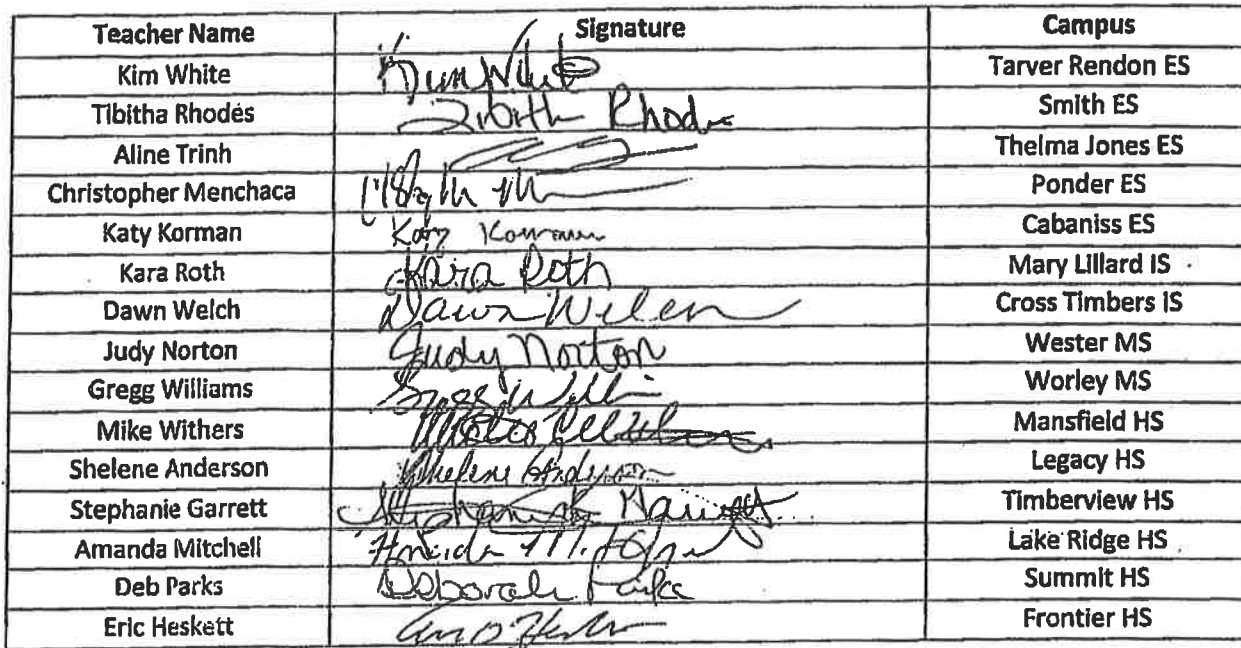 Teacher Name Signature Campus
Kim White Kim White Tarver Rendon ES
Tibitha Rhodes Tibitha Rhodes Smith ES
Aline Trinh Thelma Jones ES
Christopher Menchaca Ponder ES
Katy Korman Katy Korman Cabaniss ES
Kara Roth Kara Roth Mary Lillard IS
Dawn Welch Dawn Welch Cross Timbers IS
Judy Norton Judy Norton Wester MS
Gregg Williams Gregg Worley MS
Mike Withers Mansfield HS
Shelene Anderson Shelene Anderson Legacy HS
Stephanie Garrett Stephanie Garrett Timberview HS
Amanda Mitchell Amanda Lake Ridge HS
Deb Parks Deborah Parks Summit HS
Eric Heskett Frontier HS